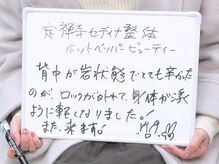 定禅寺セディナ整体
ホットペッパービューティー
背中が岩状態でとても辛かった
のが、ロックがとれて、身体が泳ぐ
ように軽くなりました!
また、来ます。